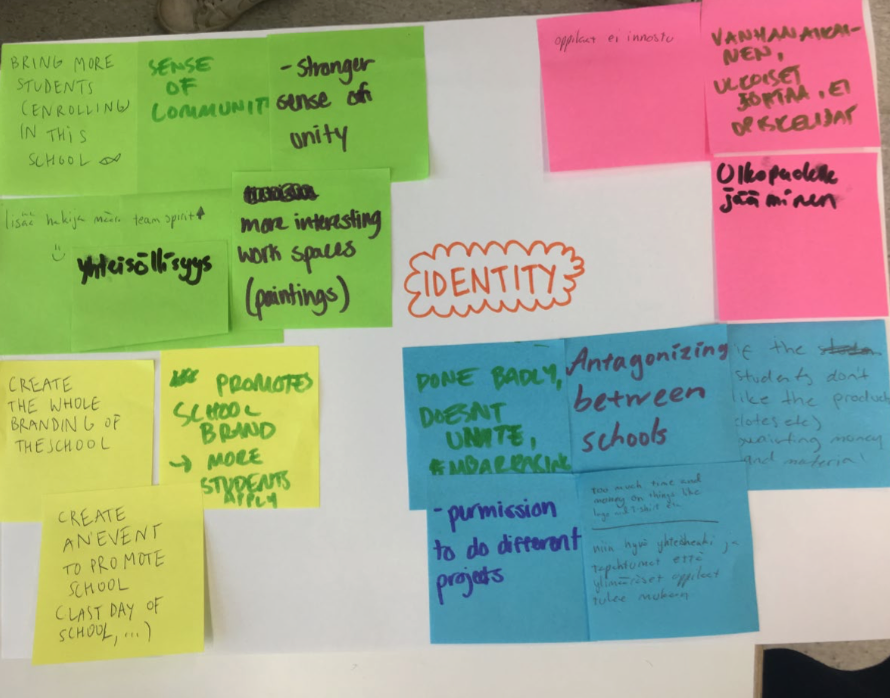 BRING MORE
STUDENTS
(ENROLLING
IN THIS
SCHOOL
SENSE
OF
COMMUNIT
- stronger
sense of
unity
lisää hakija määrä
team spirit
yhteisöllisyys
more interesting
work spaces
(paintings)
oppilaat ei innostu
VANHANAIKAI-
NEN,
ULKOISET
JOHTAA, EI
OPISKELIJAT
Ulkopuolelle
jääminen
IDENTITY
CREATE
THE WHOLE
BRANDING OF
THE SCHOOL
PROMOTES
SCHOOL
BRAND
→ MORE
STUDENTS
APPLY
CREATE
AN EVENT
TO PROMOTE
SCHOOL
(LAST DAY OF
SCHOOL, ...)
DONE BADLY,
DOESNT
UNITE,
EMBARRASING
Antagonizing
between
schools
the
students don't
like the product
money
and material
- purmission
to do different
projects
too much time and
money on things like
niin hyvä yhteishenki, ja
tapahtumat että
ylimääräiset oppilaat
tulee mukaan